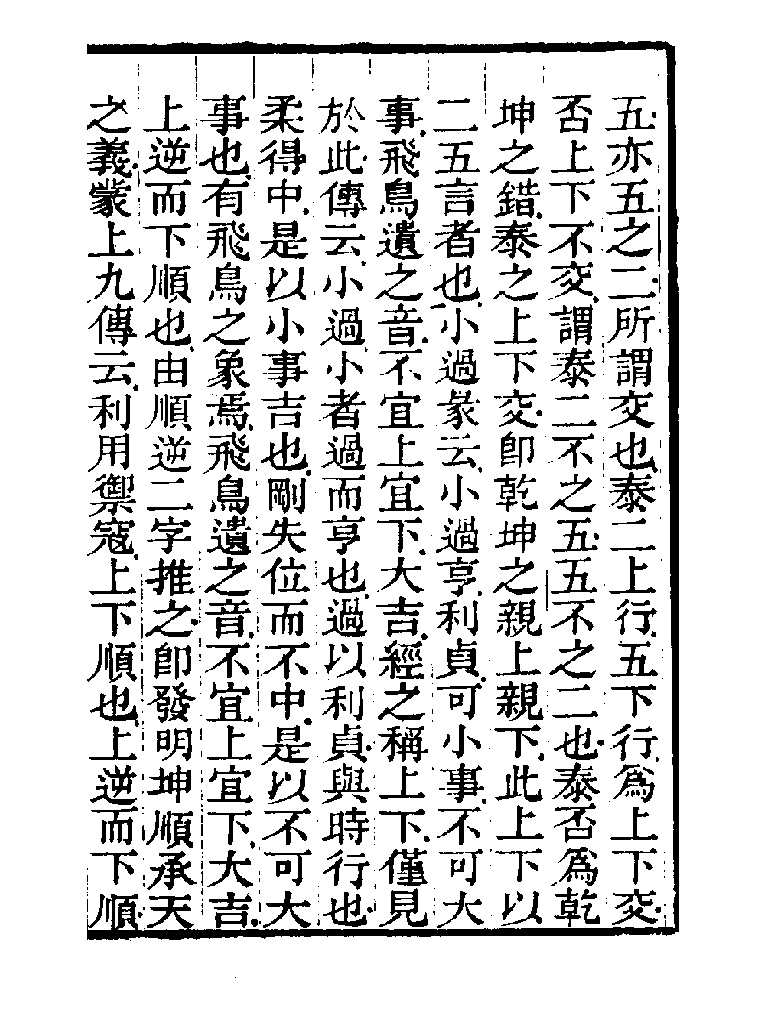 五亦五之二所謂交也泰二上行五下行爲上下交
否上下不交謂泰二不之五五不之二也泰否爲乾
坤之錯泰之上下交卽乾坤之親上親下此上下以
二五言者也小過彖云小過亨利貞可小事不可大
事飛鳥遺之音不宜上宜下大吉經之稱上下僅見
於此傳云小過小者過而亨也過以利貞與時行也
柔得中是以小事吉也剛失位而不中是以不可大
事也有飛鳥之象焉飛鳥遺之音不宜上宜下大吉
上逆而下順也由順逆二字推之卽發明坤順承天
之義蒙上九傳云利用禦寇上下順也上逆而下順